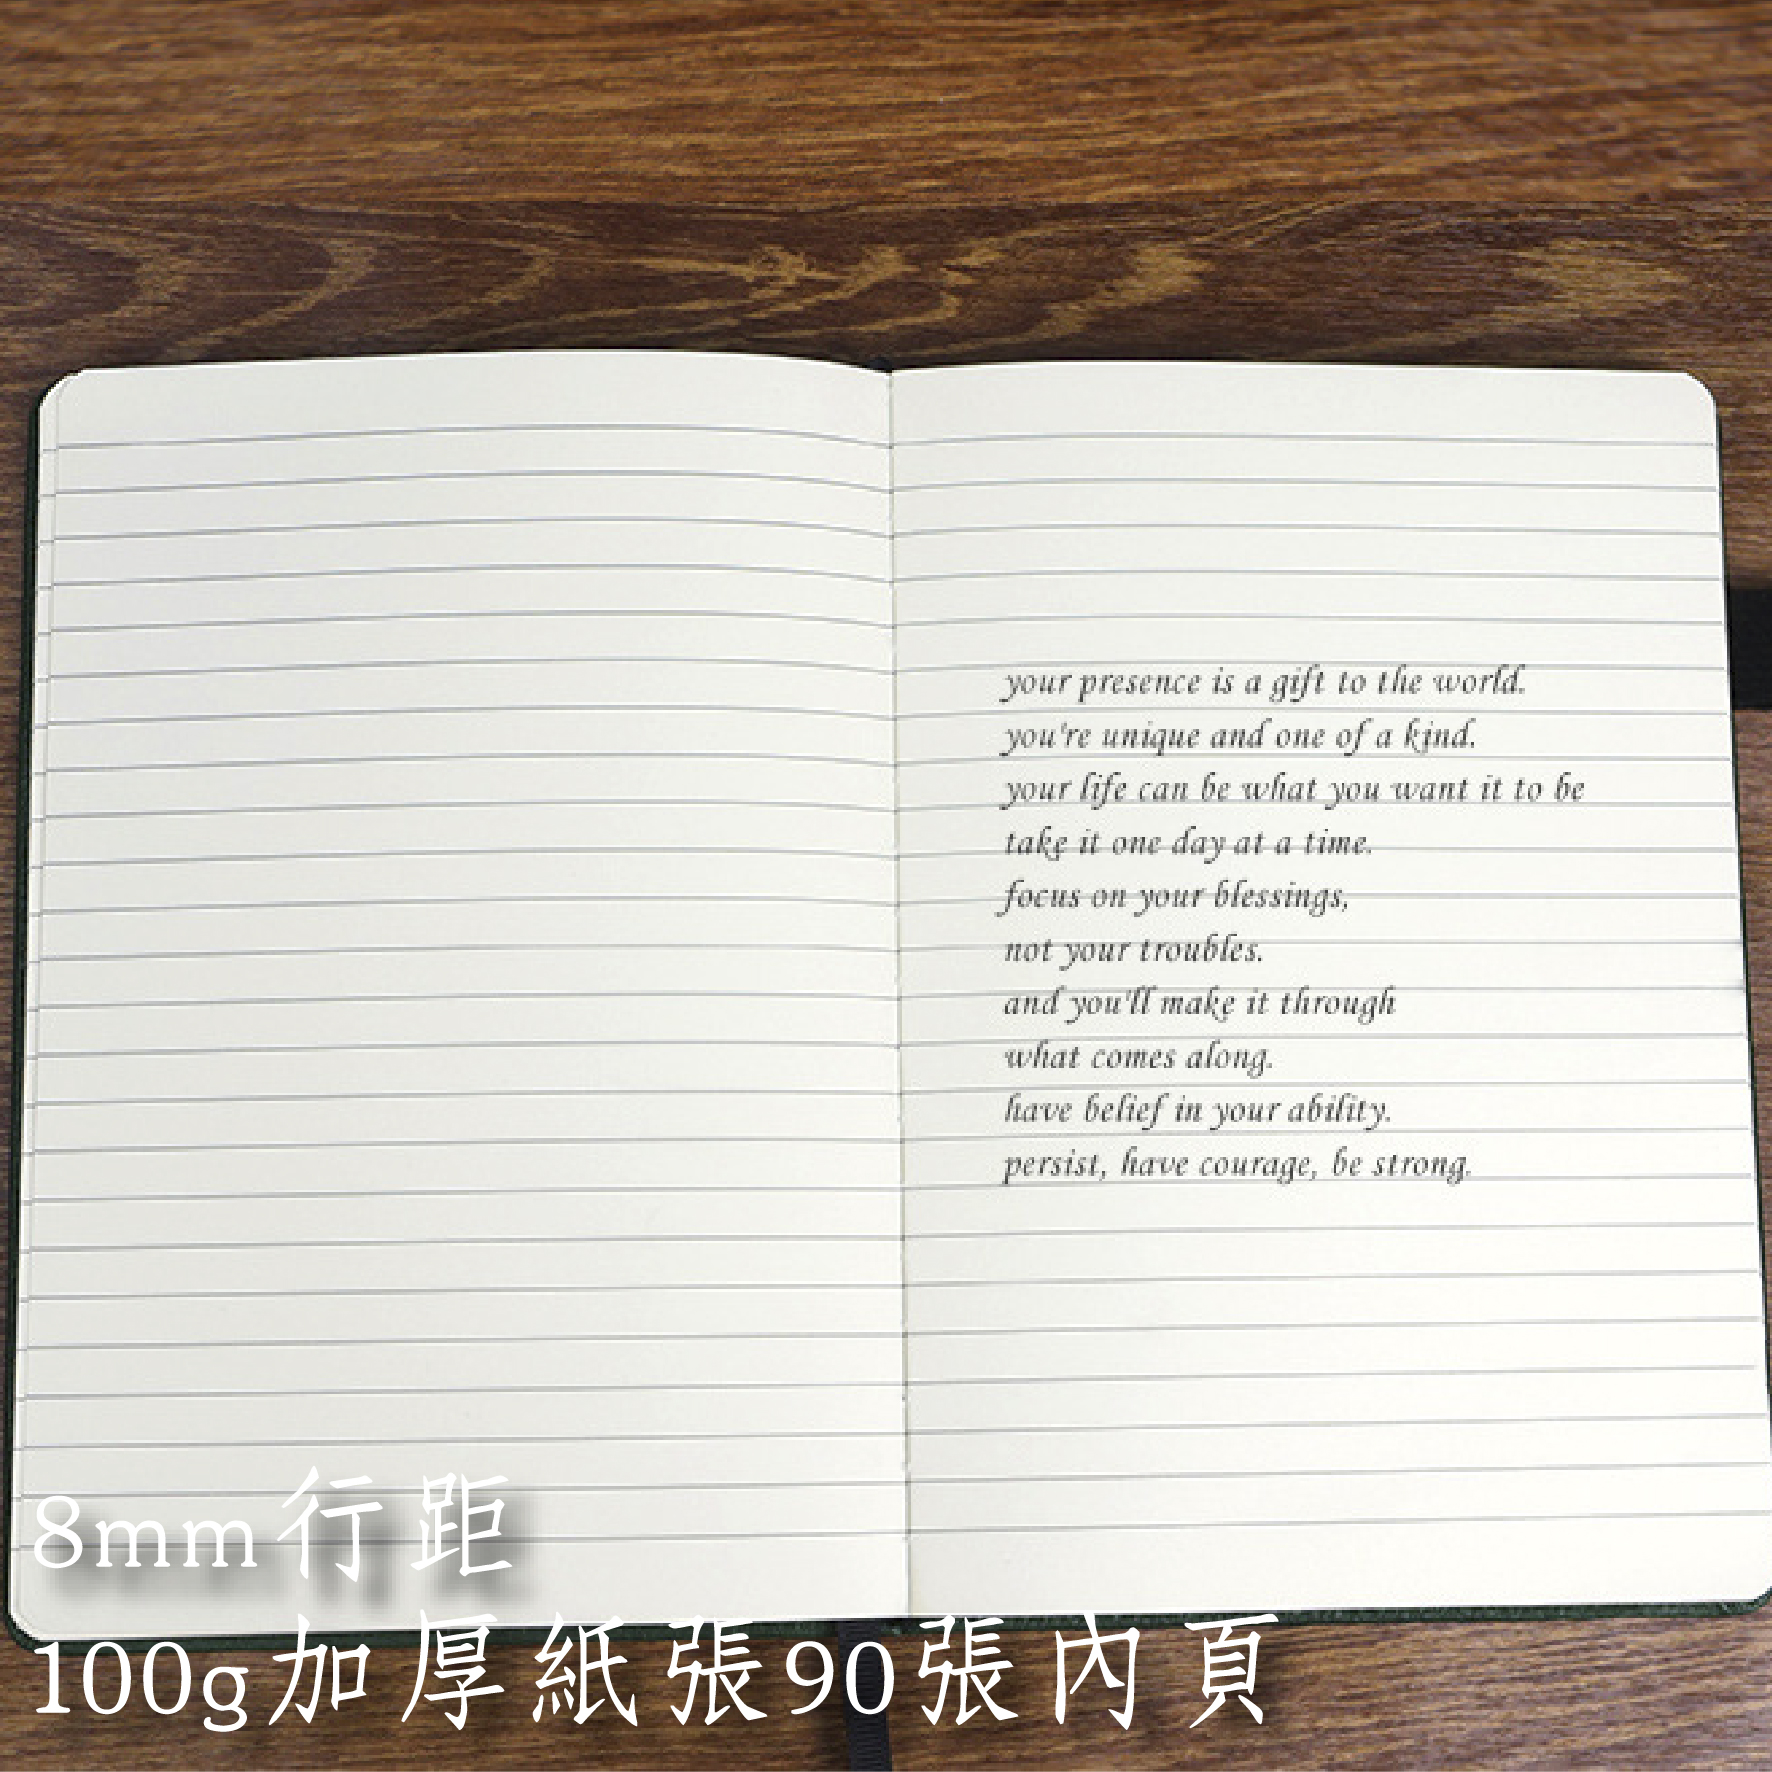 your presence is a gift to the world.
you're unique and one of a kind.
your life can be what you want it to be
take it one day at a time.
focus on your blessings,
not your troubles.
and you'll make it through
what comes along.
have belief in your ability.
persist, have courage, be strong.
8mm行距
100g加厚紙張90張內頁